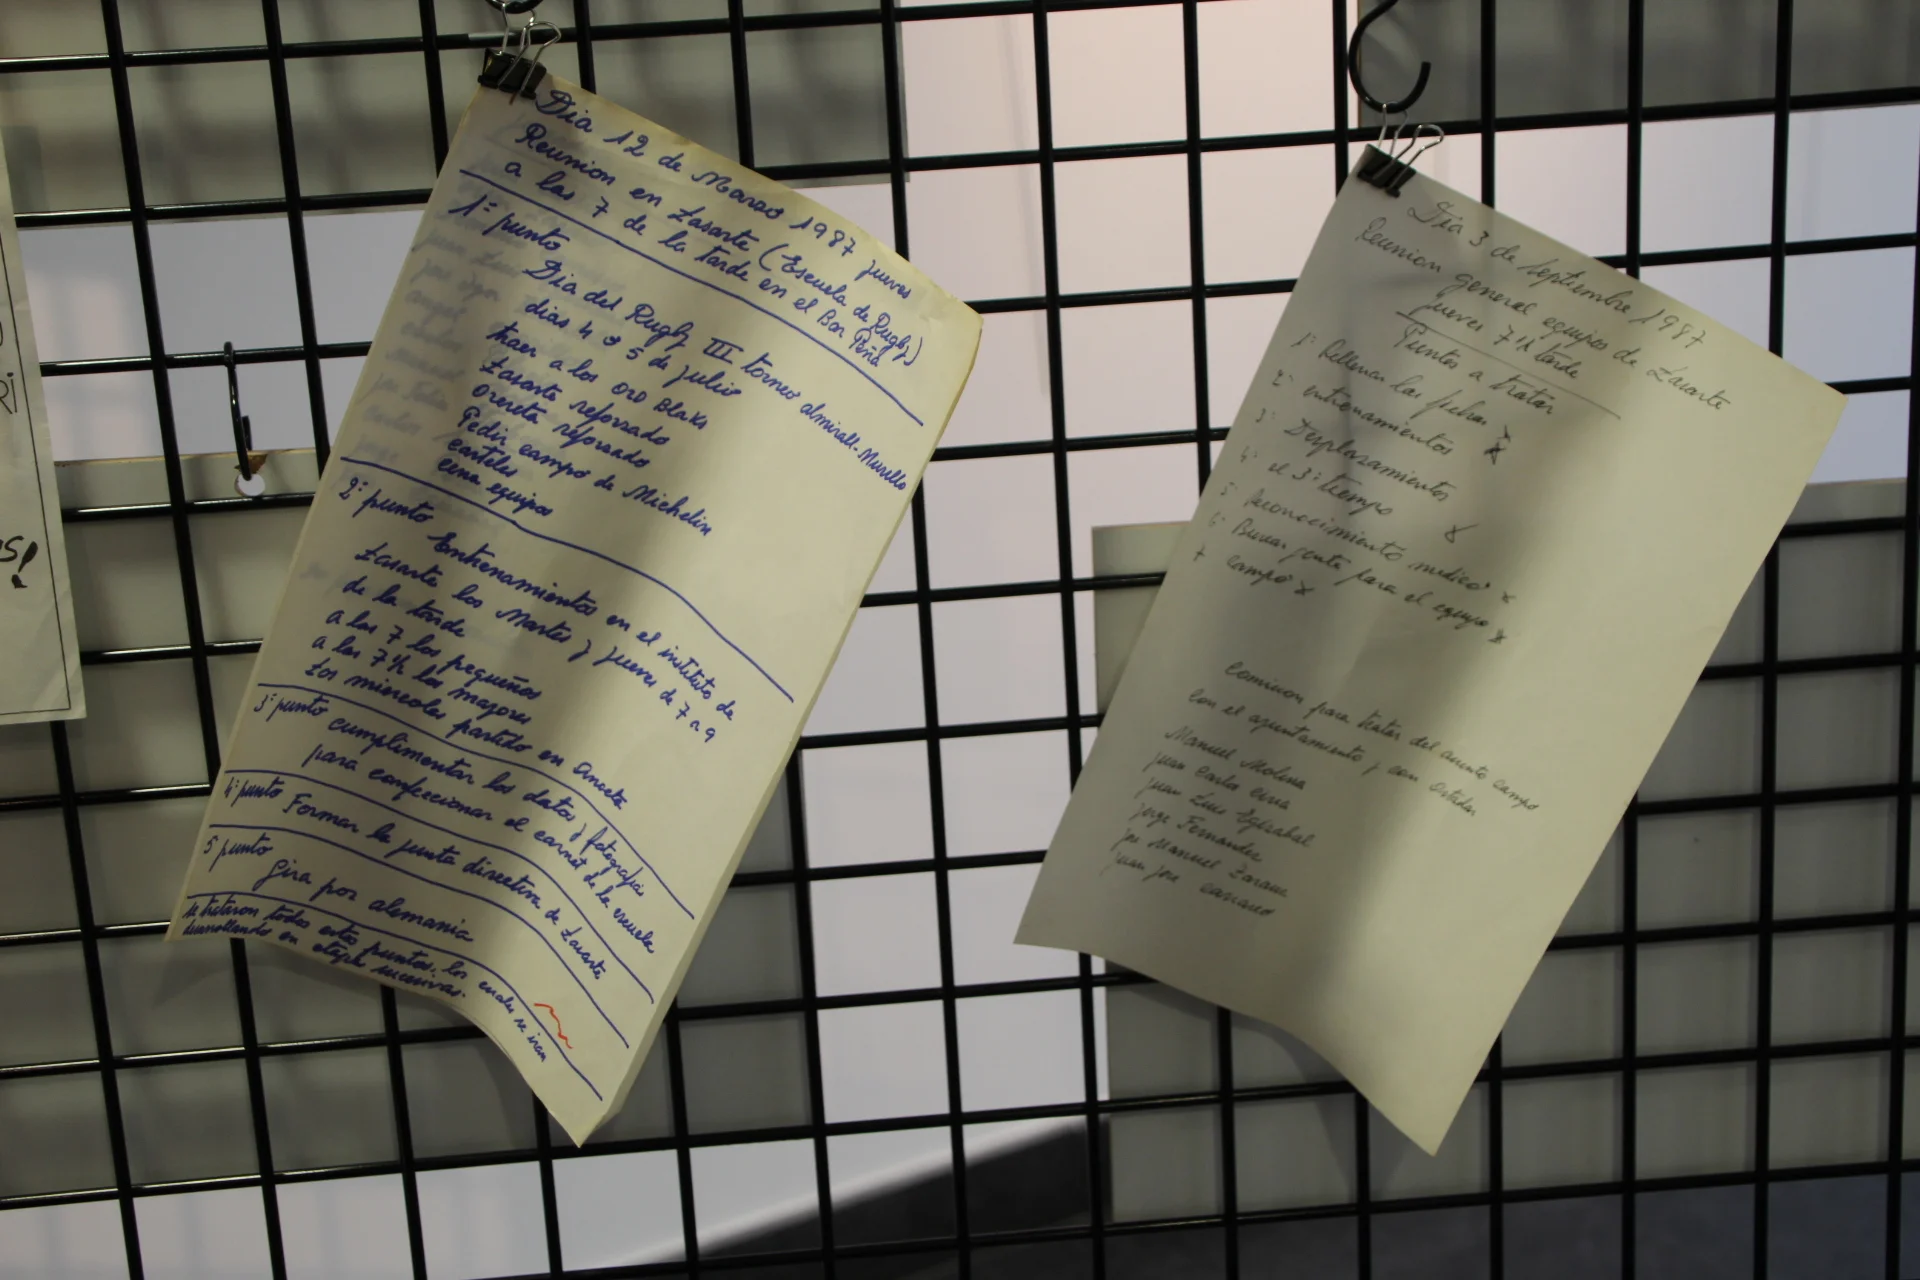 RI
S!
Dia 12 de Marzo 1987 jueves
Reunion en Lasarte (Escuela de Rugby)
a las 7 de la tarde en el Bar Peña
1º punto
Dia del Rugby III torneo almirall-Murillo
dias 4 o 5 de julio
traer a los ORO BlaKs
Lasarte reforzado
Orereta reforzado
Pedir campo de Michelin
carteles
cena equipos
2º punto
Entrenamientos en el instituto de
Lasarte los Martes y jueves de 7 a 9
de la tarde
a las 7 los pequeños
a las 7½ los mayores
Los miercoles partido en Anoeta
3º punto cumplimentar los datos y fotografias
para confeccionar el carnet de la escuela
4º punto Formar la junta directiva de Lasarte
5 punto
Gira por alemania
se trataron todos estos puntos. los cuales se iran
desarrollando en etapas sucesivas.
Dia 3 de Septiembre 1987
Reunion general equipos de Lasarte
jueves 7½ tarde
Puntos a tratar
1º Rellenar las fichas
2º entrenamientos
3º Desplazamientos
4º el 3º tiempo
5º Reconocimiento medico
6º Buscar gente para el equipo
7 campo
Comision para tratar del asunto campo
con el ayuntamiento y con
Manuel Molina
juan Carlos
juan Luis Egizabal
jorge Fernandez
jose Manuel
juan jose